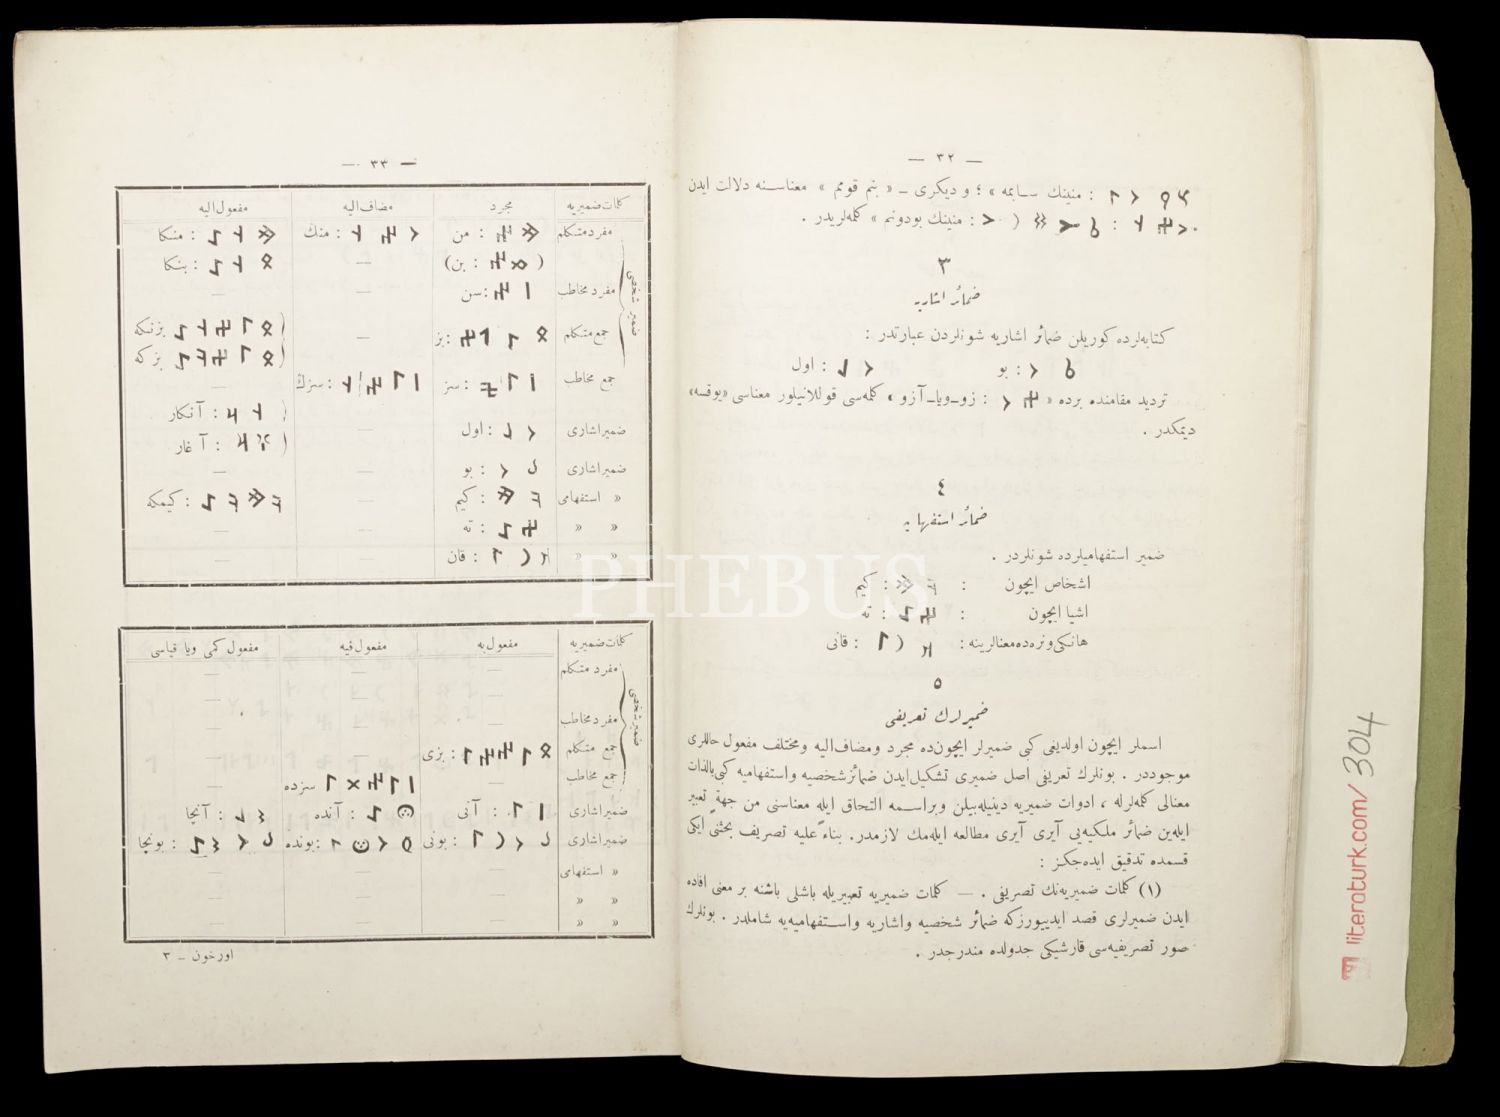 — ٣٢ —
: منينك سابمه » ؛ و ديكرى ــ « بنم قومم » معناسنه دلالت ايدن
: منينك بودونم » كلمه‌لريدر .
٣
ضمائر اشاريه
كتابه‌لرده كوريلن ضمائر اشاريه شونلردن عبارتدر :
: بو : اول
ترديد مقامنده برده « : زو ـ ويا ـ آزو » كلمه‌سى قوللانيلور معناسى «يوقسه»
ديمكدر .
٤
ضمائر استفهاميه
ضمير استفهاميلرده شونلردر .
اشخاص ايچون : : كيم
اشيا ايچون : : نه
هانكى ونره‌ده معنالرينه : : قانى
٥
ضميرلرك تعريفى
اسملر ايچون اولديغى كبى ضميرلر ايچون‌ده مجرد ومضاف‌اليه ومختلف مفعول حاللرى
موجوددر . بونلرك تعريفى اصل ضميرى تشكيل‌ايدن ضمائرشخصيه واستفهاميه كبى‌بالذات
معنالى كلمه‌لرله ، ادوات ضميريه دينيله‌بيلن وبراسمه التحاق ايله معناسنى من جهةٍ تعبير
ايله‌ين ضمائر ملكيه‌يى آيرى آيرى مطالعه ايله‌مك لازمدر . بناءً عليه تصريف بحثنى ايكى
قسمده تدقيق ايده‌جكز :
(١) كلمات ضميريه‌نك تصريفى . — كلمات ضميريه تعبيريله باشلى باشنه بر معنى افاده
ايدن ضميرلرى قصد ايدييورزكه ضمائر شخصيه واشاريه واستفهاميه‌يه شاملدر . بونلرك
صور تصريفيه‌سى قارشيكى جدولده مندرجدر .
— ٣٣ —
كلمات ضميريه مجرد مضاف اليه مفعول اليه
ضمير شخصى
مفرد متكلم : من : منك : منكا
( : بن) — : بنكا
مفرد مخاطب : سن — —
جمع متكلم : بز — : بزنكه
: بزكه
جمع مخاطب : سز : سزك —
: آنكار
ضمير اشارى : اول — : آغار
ضمير اشارى : بو — —
» استفهامى : كيم — : كيمكه
» » : نه — —
» » : قان — —
كلمات ضميريه مفعول به مفعول فيه مفعول كمى ويا قياسى
ضمير شخصى
مفرد متكلم — — —
مفرد مخاطب — — —
جمع متكلم : بزى — —
جمع مخاطب — سزده —
ضمير اشارى : آنى : آنده : آنجا
ضمير اشارى : بونى : بونده : بونجا
» استفهامى — — —
» » — — —
» » — — —
اورخون ـ ٣
PHEBUS
literaturk.com/ 304